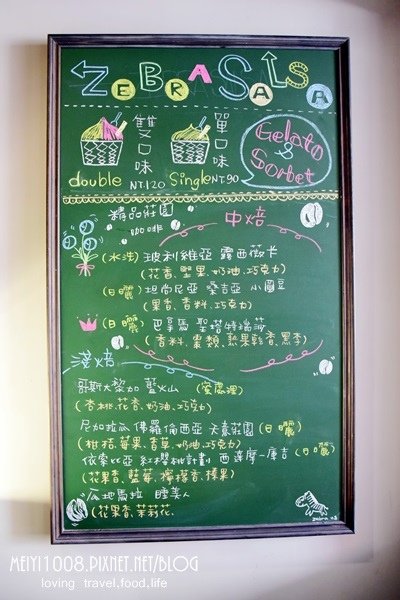 ZEBRA SALSA
雙口味
單口味
double NT.120
Single NT.90
Gelato
&
Sorbet
精品莊園
咖啡
中焙
(水洗) 玻利維亞 露西薇卡
(花香、堅果、奶油、巧克力)
(日曬) 坦尚尼亞 桑吉亞 小圓豆
(果香、香料、巧克力)
(日曬) 巴拿馬 聖塔特瑞莎
(香料、棗類、熱果乾香、黑杏)
淺焙
哥斯大黎加 藍火山 (蜜處理)
(杏桃、花香、奶油、巧克力)
尼加拉瓜 佛羅倫西亞 天意莊園 (日曬)
(柑桔、莓果、香草、奶油、巧克力)
依索比亞 紅櫻桃計劃 西達摩-庫吉 (日曬)
(花果香、藍莓、檸檬香、榛果)
瓜地馬拉 睡美人
(花果香、茉莉花、
zebra
MEIYI1008.PIXNET.NET/BLOG
loving travel,food,life